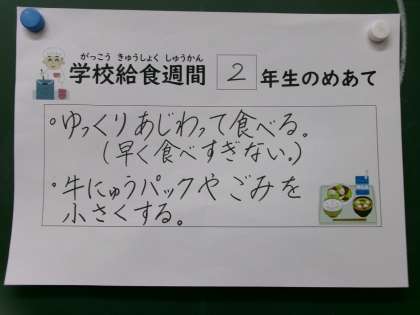 がっこう きゅうしょく しゅうかん
学校給食週間 2 年生のめあて
・ゆっくりあじわって食べる。
(早く食べすぎない。)
・牛にゅうパックやごみを
小さくする。